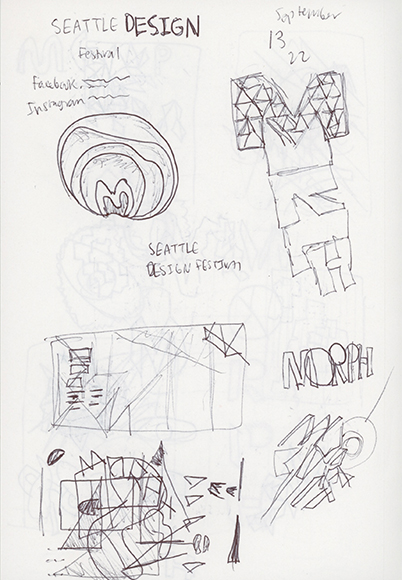 SEATTLE DESIGN
Festival
Facebook
Instagram
September
13
22
M
MIKE
SEATTLE
DESIGN FESTIVAL
MORPH